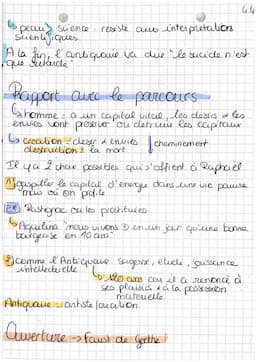 4.4
↳ peau > science : resiste aux interpretations
scientifiques
A la fin, l'antiquaire va dire "le suicide n'est
que retardé"
Rapport avec le parcours
↳ homme = a un capital vital, les desirs & les
envies vont preserver ou detruire les capitaux
↳ creation = desir & envies | cheminement
destruction = la mort
Il y a 2 choix possibles qui s'offrent à Raphaël
1) gaspiller le capital d'energie dans une vie pauvre
mais où on profite
Ex: Rastignac ou les prostituées
↳ Aquilina "nous vivons + en un jour qu'une bonne
bourgeoise en 10 ans"
2) Comme l'Antiquaire sagesse, etude, jouissance
intellectuelle
↳ 120 ans car il a renoncé à
ses plaisirs & à la possession
materielle.
Antiquaire = antisteticisation.
Ouverture → Faust de Goethe